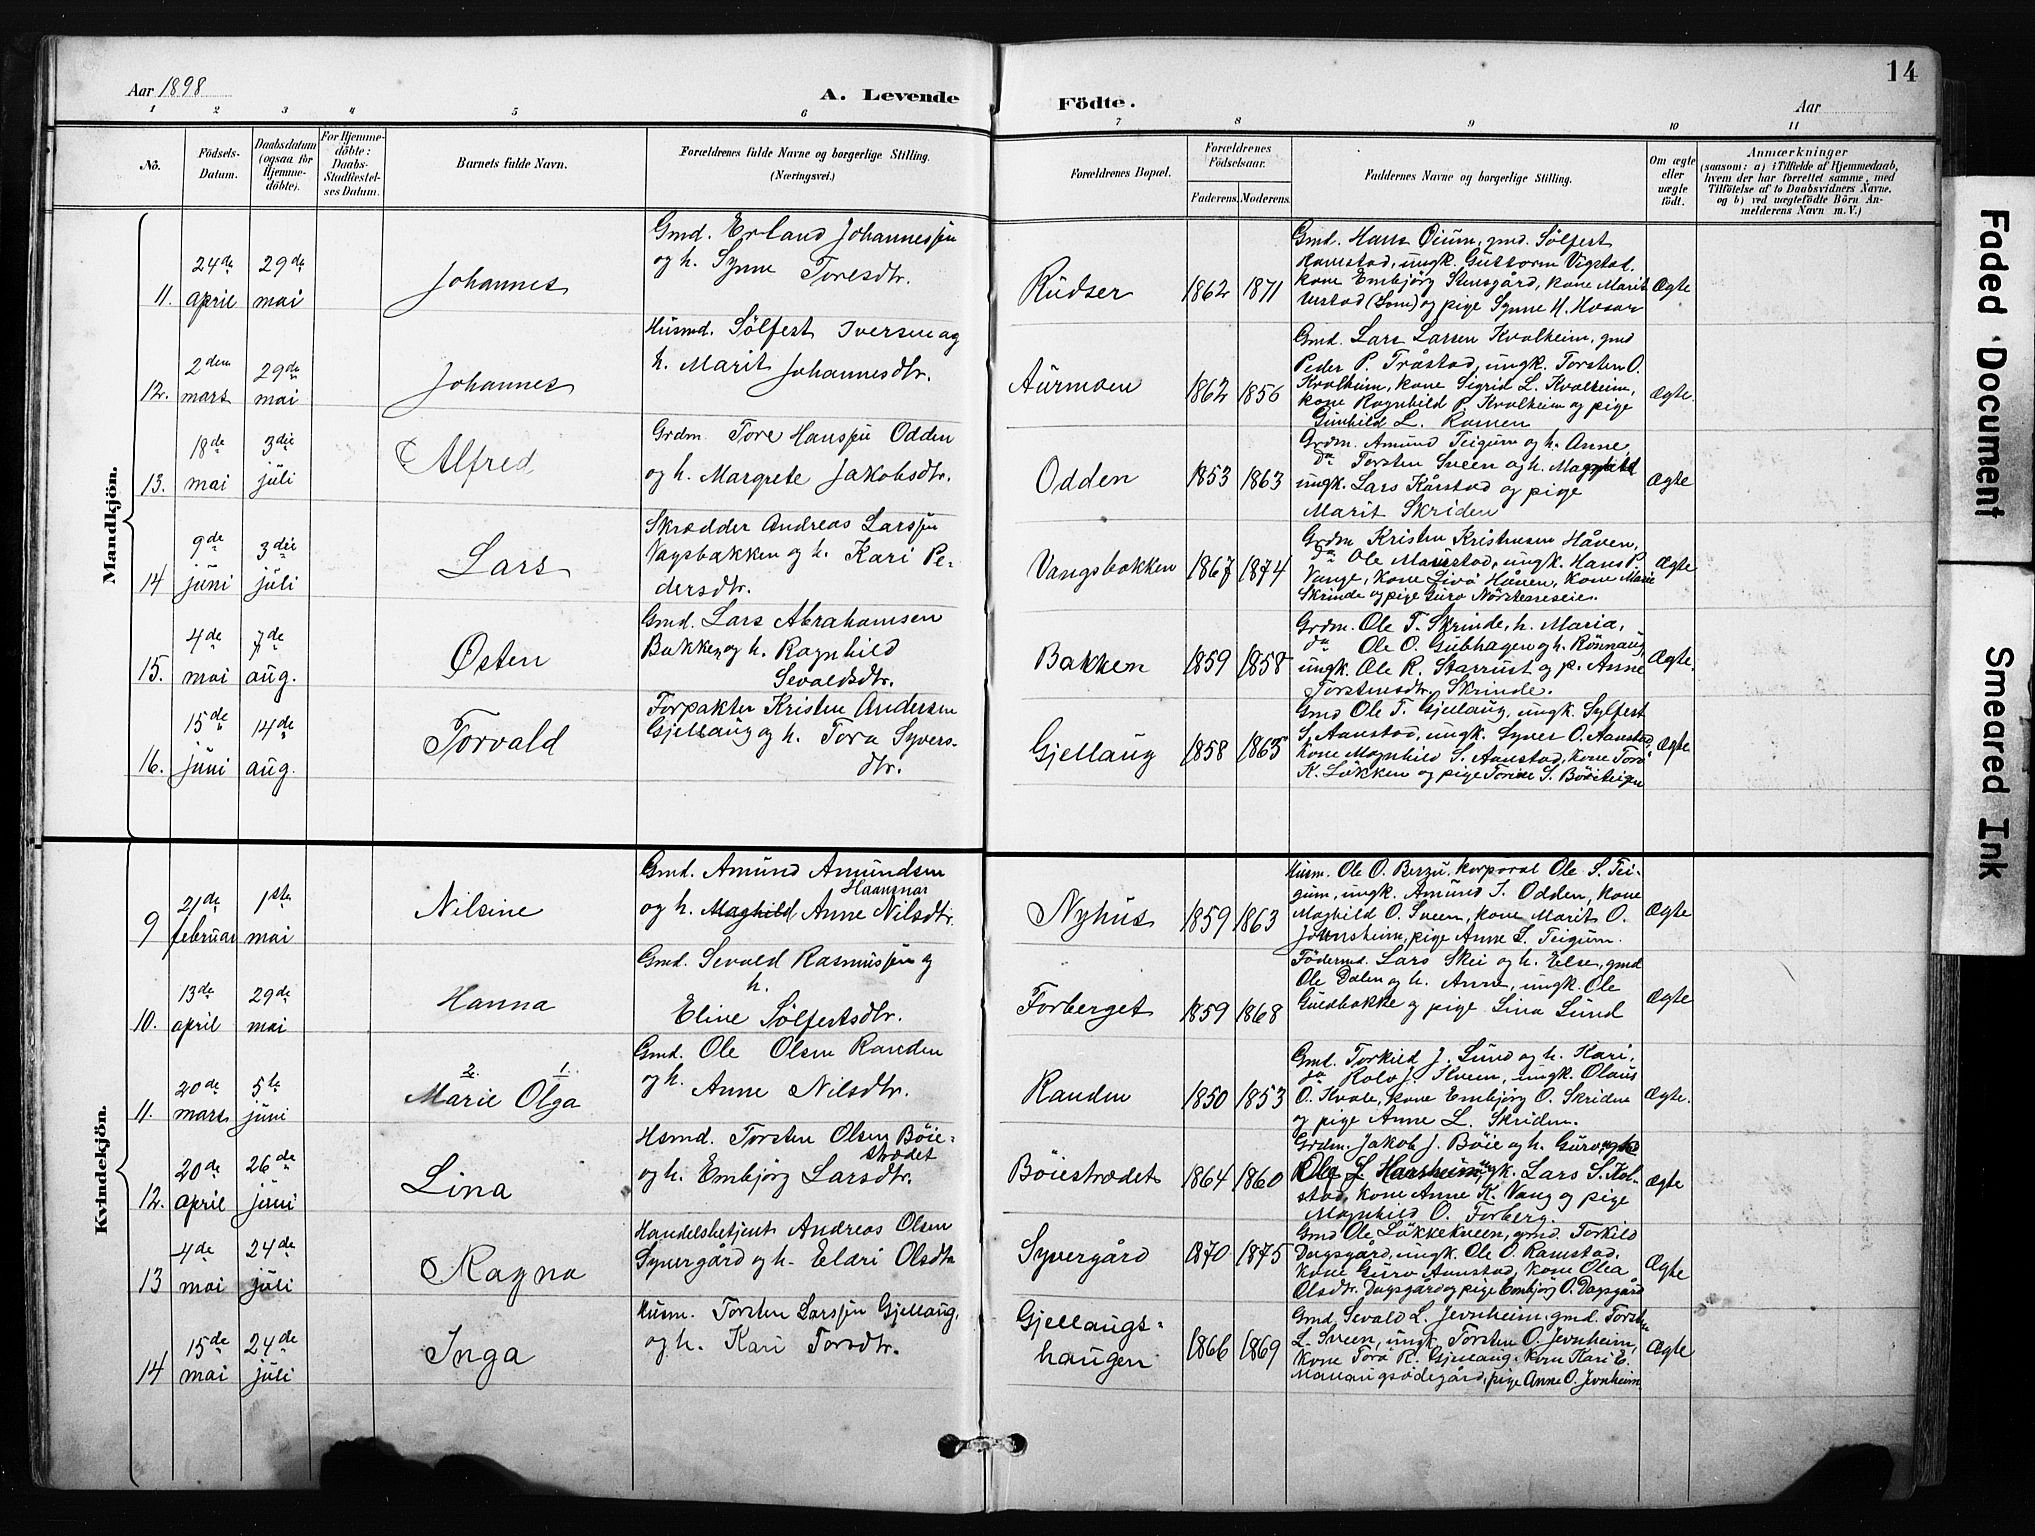 14
Aar 1898
A. Levende
Födte.
Aar
1 2 3 4 5 6 7 8 9 10 11
No.
Födsels-
Datum.
Daabsdatum
(ogsaa for
Hjemme-
döbte).
For Hjemme-
döbte:
Daabs-
Stadfæstel-
ses Datum.
Barnets fulde Navn.
Forældrenes fulde Navne og borgerlige Stilling.
(Næringsvei.)
Forældrenes Bopæl.
Forældrenes
Födselsaar.
Faderens.
Moderens.
Faddernes Navne og borgerlige Stilling.
Om ægte
eller
uægte
født.
Anmærkninger
(saasom: a) i Tilfælde af Hjemmedaab,
hvem der har forrettet samme, med
Tilföielse af to Daabsvidners Navne,
og b) ved uægtefödte Börn An-
melderens Navn m. V.)
Mandkjön.
11.
24de
april
29de
mai
Johannes
Gmd. Erland Johannessen
og h. Synne Toresdtr.
Rudser
1862
1871
Gmd. Hans Oium, gmd. Sølfest
Ramstad, ungk. Guttorm Vigstal.
kone Embjörg Stensgård, kone Marit
Ustad (Lom) og pige Synne H. Mosar
Ægte
12.
2den
mars
29de
mai
Johannes
Husmd. Sølfest Iversen og
h. Marit Johannesdtr.
Aurmoen
1862
1856
Gmd. Lars Larsen Kvalheim, gmd
Peder P. Tråstad, ungk. Torsten O.
Kvalheim, kone Sigrid L. Kvalheim,
kone Ragnhild P. Kvalheim og pige
Gunhild L. Ramen
Ægte.
13.
18de
mai
3die
juli
Alfred
Grdm. Tore Hanssen Odden
og h. Margrete Jakobsdtr.
Odden
1853
1863
Grdm. Amund Teigum og h. Anne
do Torsten Sveen og h. Magnhild
ungk. Lars Kårstad og pige
Marit Skriden
Ægte
14
9de
juni
3die
juli
Lars
Skrædder Andreas Larssen
Vangsbakken og h. Kari Pe-
dersdtr.
Vangsbakken
1867
1874
Grdm Kristen Kristensen Håven,
do Ole Maurstad, ungk. Hans P.
Vange, kone Livø Håven, kone Marie
Skrinde og pige Guro Nörsteneseie.
Ægte
15.
4de
mai
7de
aug.
Østen
Gmd. Lars Abrahamsen
Bakken og h. Ragnhild
Sevaldsdtr.
Bakken
1859
1858
Grdm. Ole T. Skrinde, h. Maria,
do Ole O. Gubhagen og h. Rønnaug,
ungk. Ole R. Starrust og p. Anne
Torstensdtr. Skrinde.
Ægte.
16.
15de
juni
14de
aug.
Torvald
Forpakter Kristen Andersen
Gjellaug og h. Tora Syvers-
dtr.
Gjellaug
1858
1865
Gmd Ole T. Gjellaug, ungk. Sylfest
S. Aanstad, ungk. Syver O. Aanstad,
kone Magnhild S. Aanstad, kone Tora
K. Løkken og pige Torine S. Böieteigen
Ægte
Kvindekjön.
9
21de
februar
1ste
mai
Nilsine
Gmd. Amund Amundsen
Haansnar
og h. Maghild Anne Nilsdtr.
Nyhus
1859
1863
Husm. Ole O. Berge, korporal Ole S. Tei-
gum, ungk. Amund T. Odden, kone
Maghild O. Sveen, kone Marit O.
Johnsheim, pige Anne S. Teigum.
Ægte
10.
13de
april
29de
mai
Hanna
Gmd. Sevald Rasmussen og
h.
Eline Sølfestsdtr.
Forberget
1859
1868
Föderaad. Lars Skei og h. Else, gmd
Ole Dalen og h. Anne, ungk. Ole
Guldbakke og pige Lina Lund
Ægte
11.
20de
mars
5te
juni
2. 1.
Marie Olga
Gmd. Ole Olsen Randen
og h. Anne Nilsdtr.
Randen
1850
1853
Gmd. Torkild J. Lund og h. Kari,
do Rolv J. Kveen, ungk. Olaus
O. Kvale, kone Embjörg O. Skriden
og pige Anne L. Skriden.
Ægte.
12.
20de
april
26de
juni
Lina
Hsmd. Torsten Olsen Böie-
strædet
og h. Embjörg Larsdtr.
Böiestrædet
1864
1860
Grdm. Jakob J. Böie og h. Guro, gmd
Ola J. Harsheim, ungk. Lars S. Kol-
stad, kone Anne K. Vang og pige
Magnhild O. Forberg.
Ægte
13
4de
mai
24de
juli
Ragna
Handelsbetjent Andreas Olsen
Syvergård og h. Elari Olsdtr
Syvergård
1870
1875
Gmd Ole Løkkekveen, gmd. Torkild
Dagsgård, ungk. Ole O. Ramstad.
kone Guro Aanstad, kone Olea
Olsdtr. Dagsgård og pige Embjörg O. Dagsgård
Ægte
14
15de
mai
24de
juli
Inga
Husm. Torsten Larssen Gjellaug,
og h. Kari Torsdtr.
Gjellaugs-
haugen
1866
1869
Gmd. Sevald L. Jevnheim, gmd. Torsten
L. Sveen, ungk. Torsten O. Jevnheim,
kone Tora R. Gjellaug. kone Kari E.
pige Anne O. Jevnheim
Ægte
Faded Document
Smeared Ink